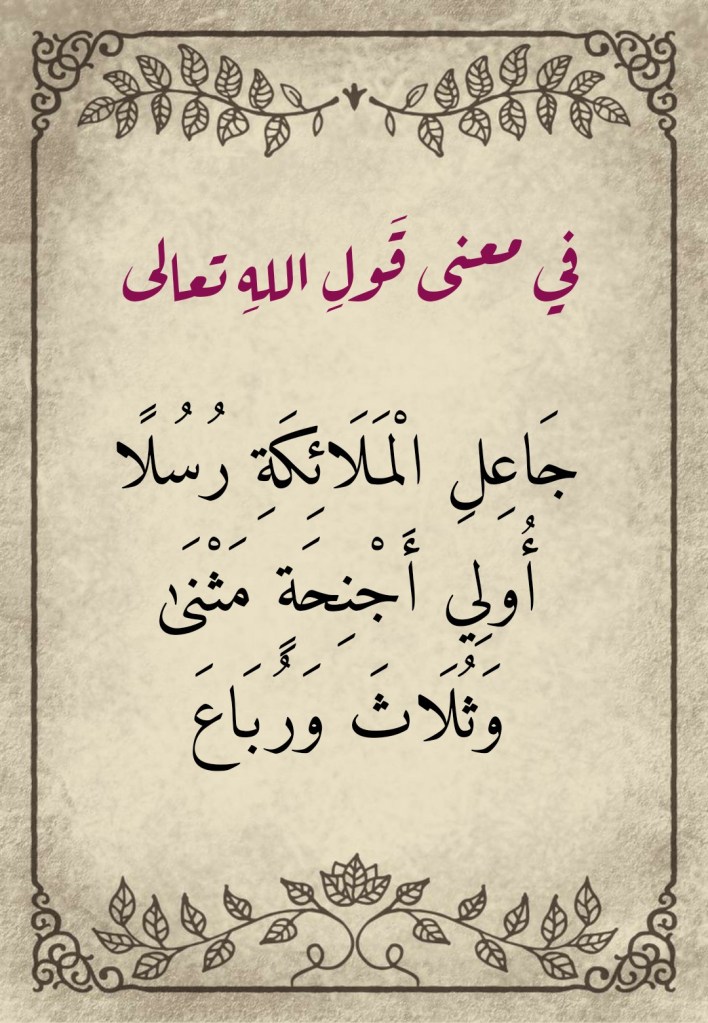 في معنى قَولِ اللهِ تعالى
جَاعِلِ الْمَلَائِكَةِ رُسُلًا
أُولِي أَجْنِحَةٍ مَثْنَىٰ
وَثُلَاثَ وَرُبَاعَ